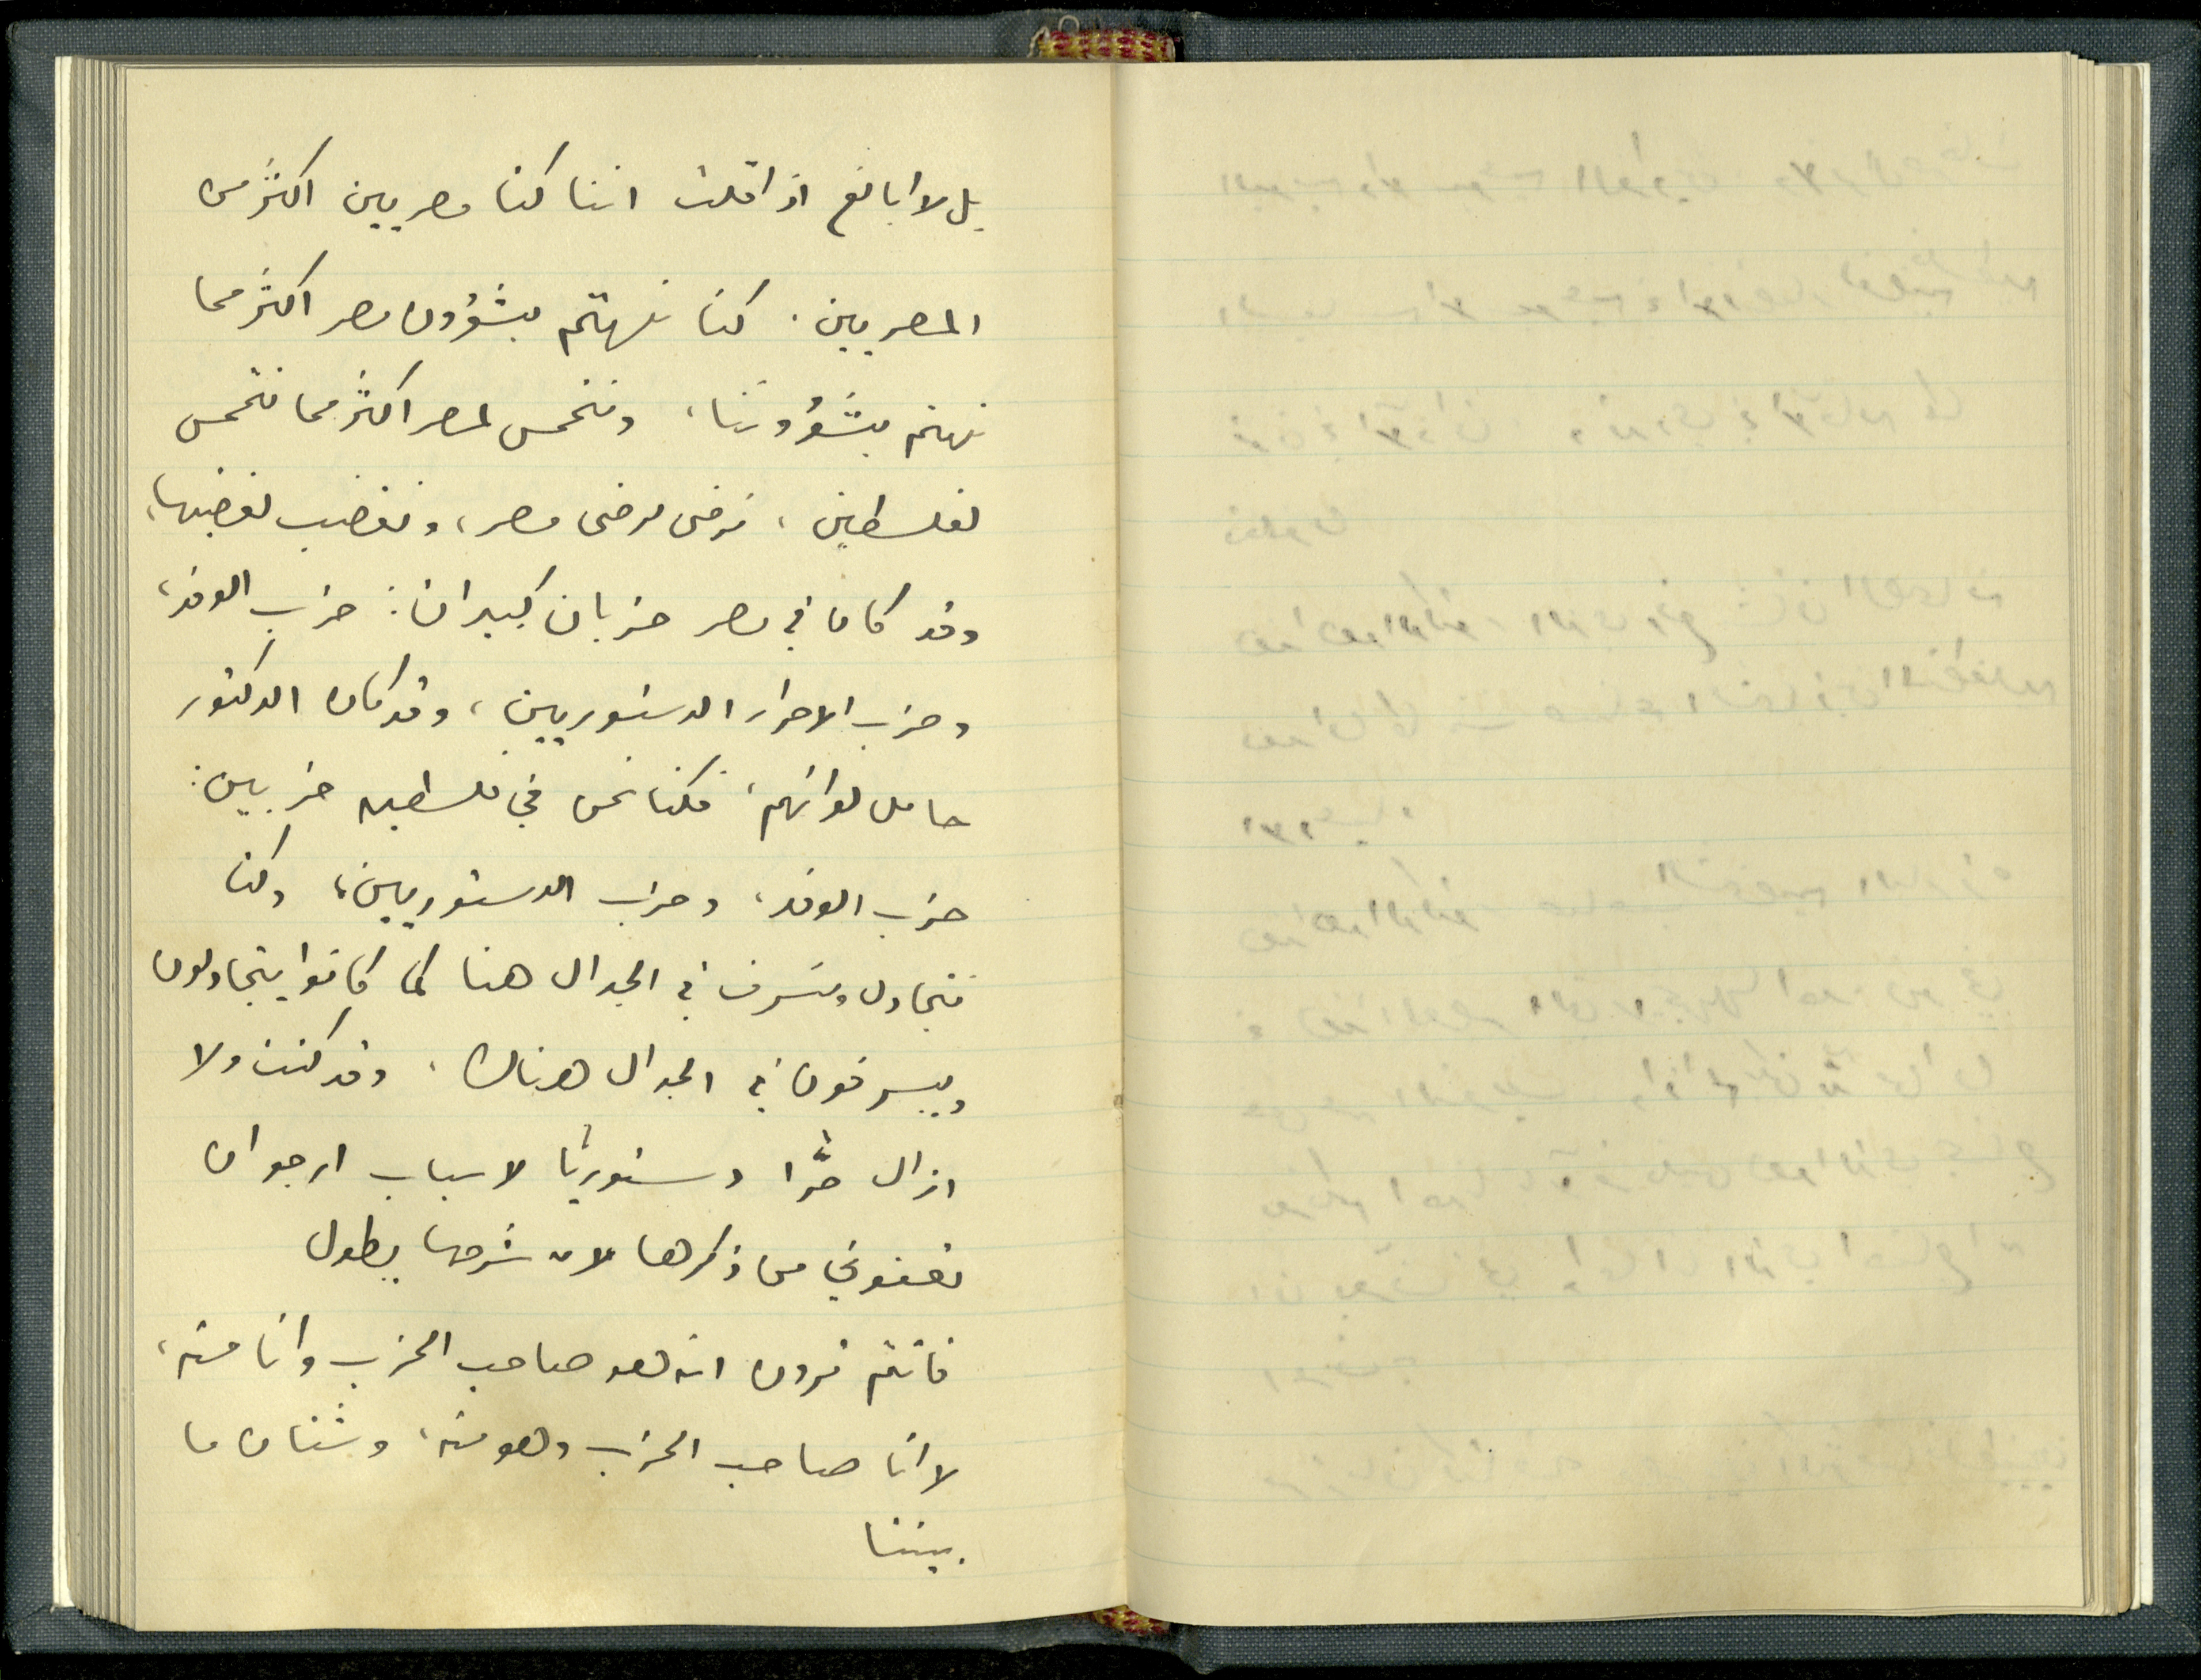 بل لا ابالغ اذا قلت اننا كنا مصريين اكثر من
المصريين. كنا نهتم بشؤون مصر اكثر مما
نهتم بشؤوننا، ونتحمس لمصر اكثر مما نتحمس
لفلسطين، نرضى لرضى مصر، ونغضب لغضبها،
وقد كان في مصر حزبان كبيران: حزب الوفد،
وحزب الاحرار الدستوريين، وقد كان الدكتور
حامل لوائهم، فكنا نحن في فلسطين حزبين:
حزب الوفد، وحزب الدستوريين، وكنا
نتجادل ونسرف في الجدال هنا كما كانوا يتجادلون
ويسرفون في الجدال هناك، وقد كنت ولا
ازال حرًّا دستوريًا لاسباب ارجو ان
تعفوني من ذكرها لان شرحها يطول
فانتم ترون انه هو صاحب الحزب وانا منه،
لا انا صاحب الحزب وهو منه، وشتان ما
بيننا